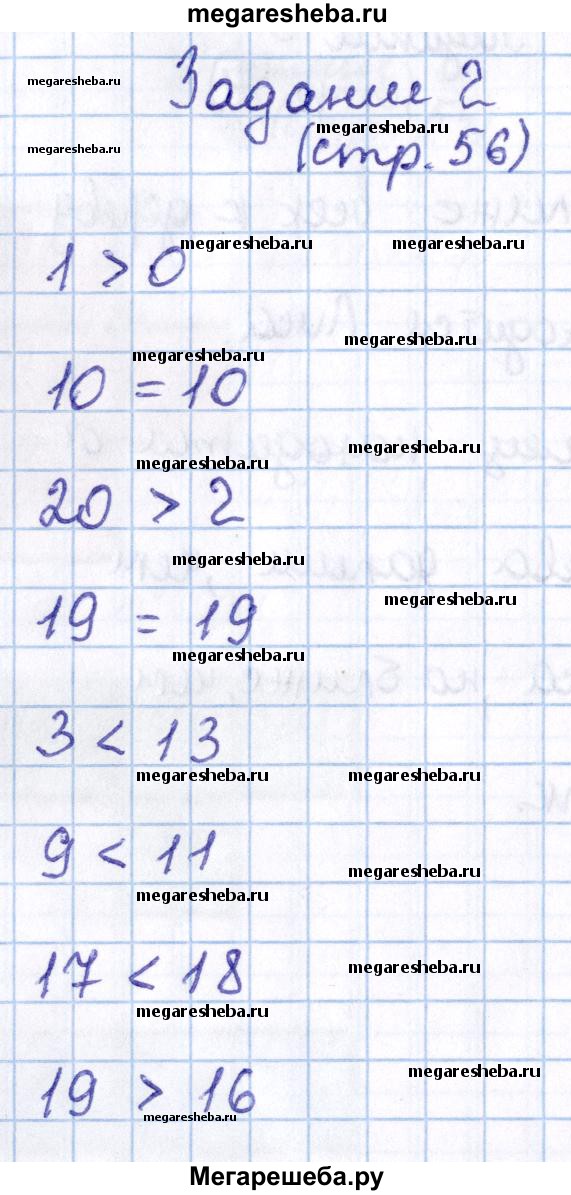 megaresheba.ru
Задание 2
megaresheba.ru
megaresheba.ru
(стр. 56)
megaresheba.ru
1 > 0
megaresheba.ru
megaresheba.ru
megaresheba.ru
megaresheba.ru
10 = 10
megaresheba.ru
megaresheba.ru
20 > 2
megaresheba.ru
megaresheba.ru
19 = 19
megaresheba.ru
3 < 13
megaresheba.ru
megaresheba.ru
9 < 11
megaresheba.ru
megaresheba.ru
17 < 18
megaresheba.ru
megaresheba.ru
19 > 16
megaresheba.ru
megaresheba.ru
Мегарешеба.ру